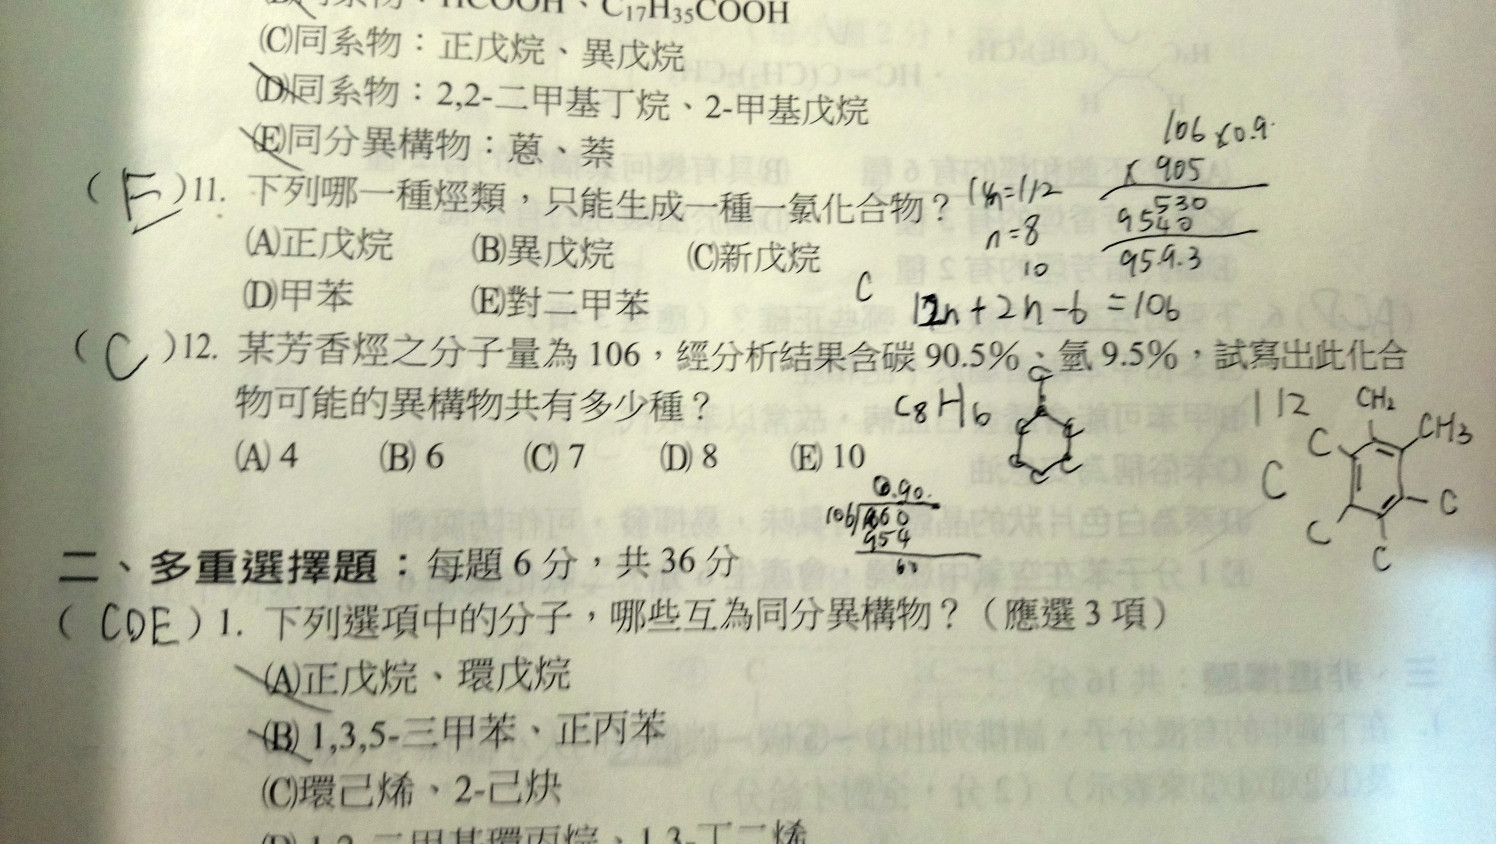 同系物：HCOOH、C17H35COOH
(C)同系物：正戊烷、異戊烷
(D)同系物：2,2-二甲基丁烷、2-甲基戊烷
(E)同分異構物：蒽、萘
(E)11. 下列哪一種烴類，只能生成一種一氯化合物？
14n=112
n=8
106×0.9
× 905
530
9540
959.3
(A)正戊烷 (B)異戊烷 (C)新戊烷
(D)甲苯 (E)對二甲苯
C
10
12n+2n-6=106
(C)12. 某芳香烴之分子量為 106，經分析結果含碳 90.5%、氫 9.5%，試寫出此化合
物可能的異構物共有多少種？
(A) 4 (B) 6 (C) 7 (D) 8 (E) 10
C8H6
112
CH2
CH3
C
C
C
C
C
0.90
106
954
60
二、多重選擇題：每題 6 分，共 36 分
(CDE)1. 下列選項中的分子，哪些互為同分異構物？（應選 3 項）
(A)正戊烷、環戊烷
(B) 1,3,5-三甲苯、正丙苯
(C)環己烯、2-己炔
(D) 1,2-二甲基環丙烷、1,3-丁二烯